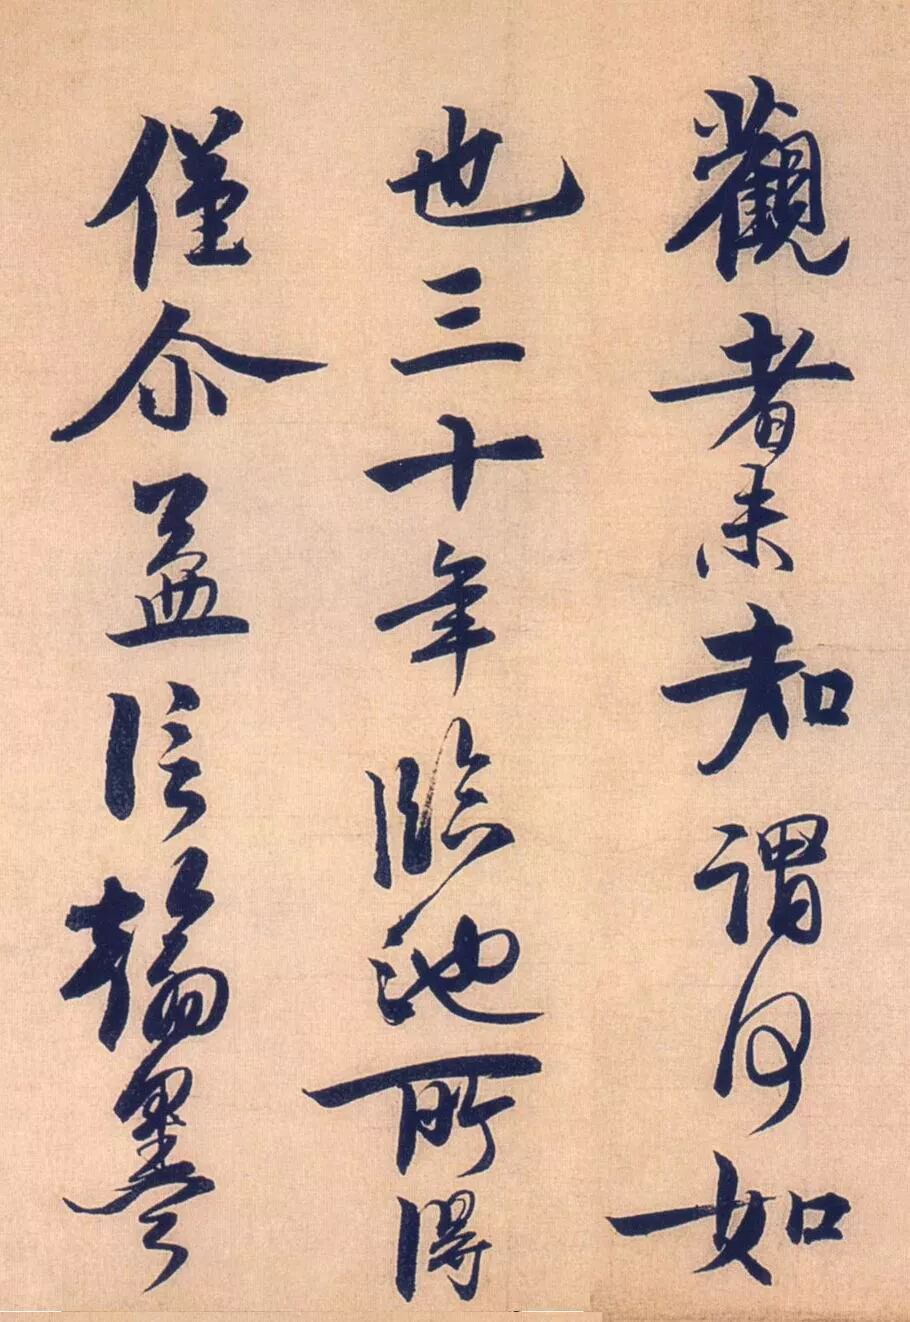 觀者未知謂何如
也三十年臨池所得
僅尒益信翰墨